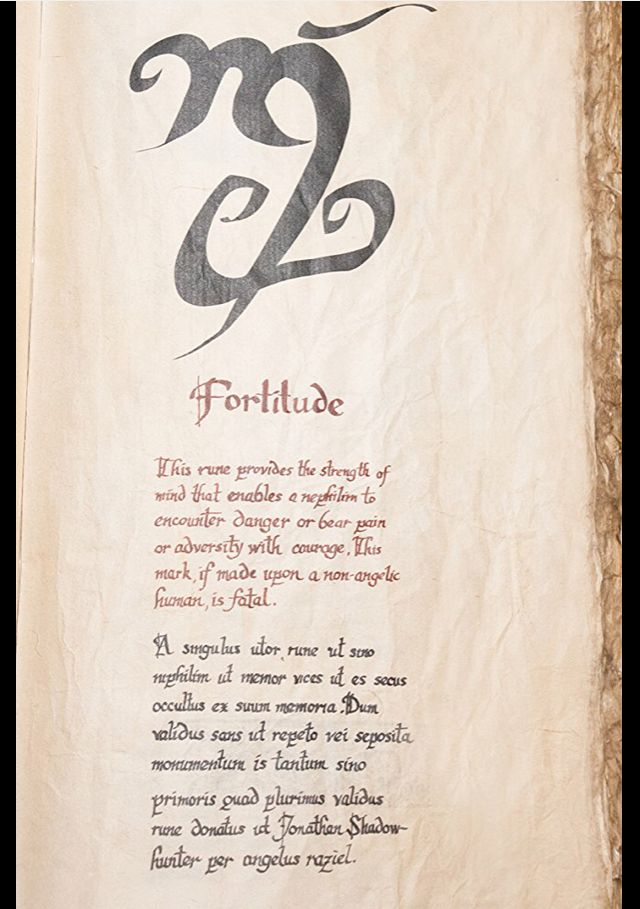 Fortitude
This rune provides the strength of
mind that enables a nephilim to
encounter danger or bear pain
or adversity with courage. This
mark, if made upon a non-angelic
human, is fatal.
A singulus utor rune ut sino
niphilim ut memor vices ut es secus
occultus ex suum memoria. Dum
validus sans ut repeto vei seposita
monumentum is tantum sino
primoris quod plurimus validus
rune donatus ut Jonathan Shadow-
hunter per angelus raziel.